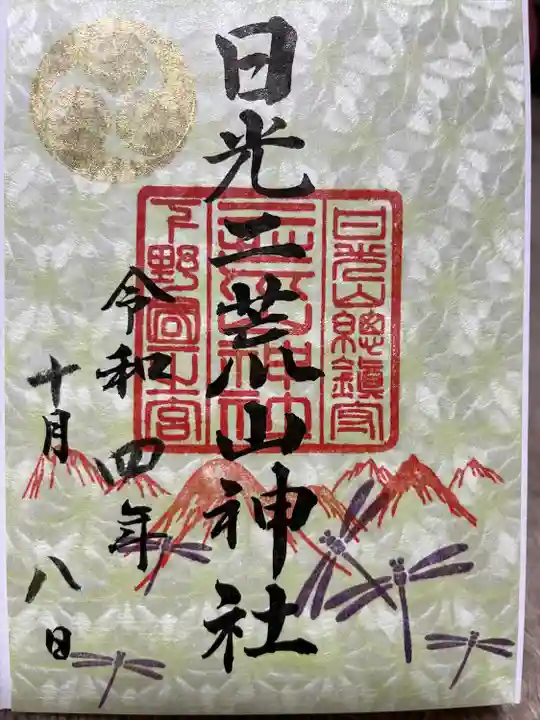 日光山總鎮守
二荒山神社
下野國一宮
日光二荒山神社
令和四年
十月八日